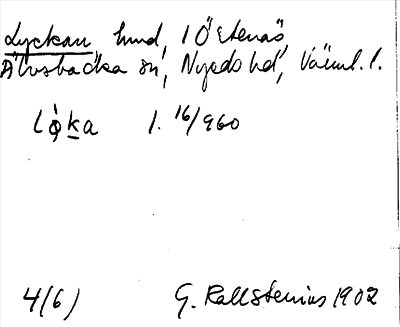 Lyckan hmd, i Ö Stenäs,
Älvsbacka sn, Nyeds hd, Värml. l.
lọ̀ka l. 16/960
4(6) G. Kallstenius 1902